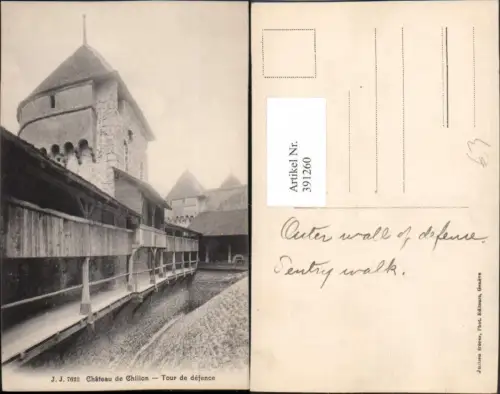 J. J. 7622 Château de Chillon — Tour de défense
Artikel Nr.
391260
63
Outer wall of defense.
Sentry walk.
Jullien frères, Phot. Editeurs, Genève